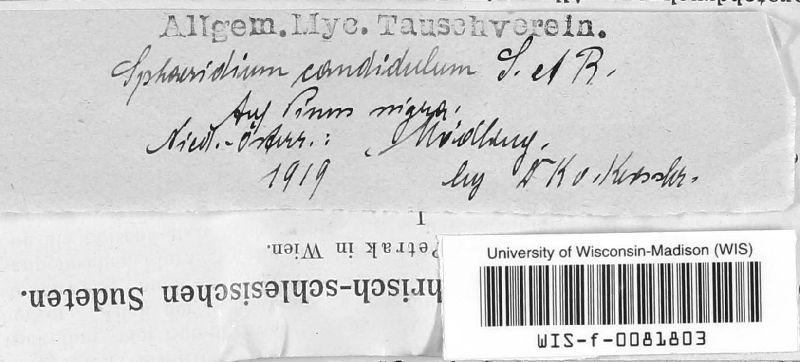 Allgem. Myc. Tauschverein.
Sphaeridium candidulum S. et R.
Auf Pinus nigra.
Nied.-Österr.: Mödling.
1919 leg Dr K v.
I
Petrak in Wien.
hrisch-schlesischen Sudeten.
University of Wisconsin-Madison (WIS)
WIS-f-0081803